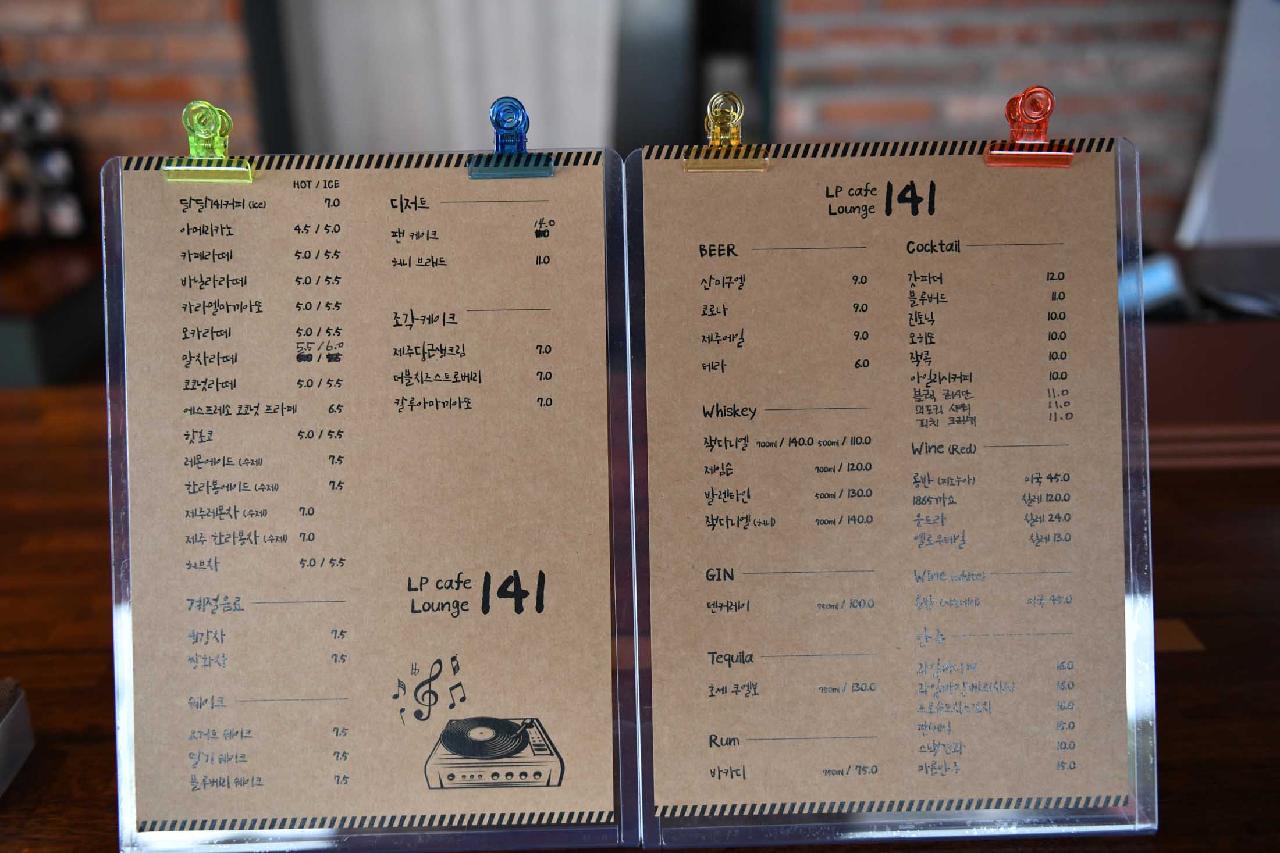 HOT / ICE
달달141커피 (ice) 7.0
아메리카노 4.5 / 5.0
카페라떼 5.0 / 5.5
바닐라라떼 5.0 / 5.5
카라멜마끼아또 5.0 / 5.5
모카라떼 5.0 / 5.5
말차라떼 5.5 / 6.0
코코넛라떼 5.0 / 5.5
에스프레소 코코넛 프라페 6.5
핫초코 5.0 / 5.5
레몬에이드 (수제) 7.5
한라봉에이드 (수제) 7.5
제주레몬차 (수제) 7.0
제주 한라봉차 (수제) 7.0
허브차 5.0 / 5.5
계절음료
생강차 7.5
쌍화차 7.5
쉐이크
요거트 쉐이크 7.5
딸기 쉐이크 7.5
블루베리 쉐이크 7.5
디저트
팬 케이크 14.0
허니 브래드 11.0
조각케이크
제주당근생크림 7.0
더블치즈스트로베리 7.0
칼루아마끼아또 7.0
LP cafe
Lounge 141
LP cafe
Lounge 141
BEER
산미구엘 9.0
코로나 9.0
제주에일 9.0
테라 6.0
Whiskey
잭다니엘 700ml / 140.0 500ml / 110.0
제임슨 700ml / 120.0
발렌타인 500ml / 130.0
잭다니엘 (허니) 700ml / 140.0
GIN
텐커레이 750ml / 100.0
Tequila
호세 쿠엘보 750ml / 130.0
Rum
바카디 750ml / 75.0
Cocktail
갓파더 12.0
블루버드 11.0
진토닉 10.0
모히또 10.0
잭콕 10.0
아일리시커피 10.0
블랙 러시안 11.0
미도리 샤워 11.0
피치 크러쉬 11.0
Wine (Red)
롱반 (피노누아) 미국 45.0
1865까쇼 칠레 120.0
운드라가 칠레 24.0
옐로우테일 칠레 13.0
Wine (white)
롱반 (샤도네이) 미국 45.0
안주
16.0
16.0
16.0
15.0
10.0
마른안주 15.0